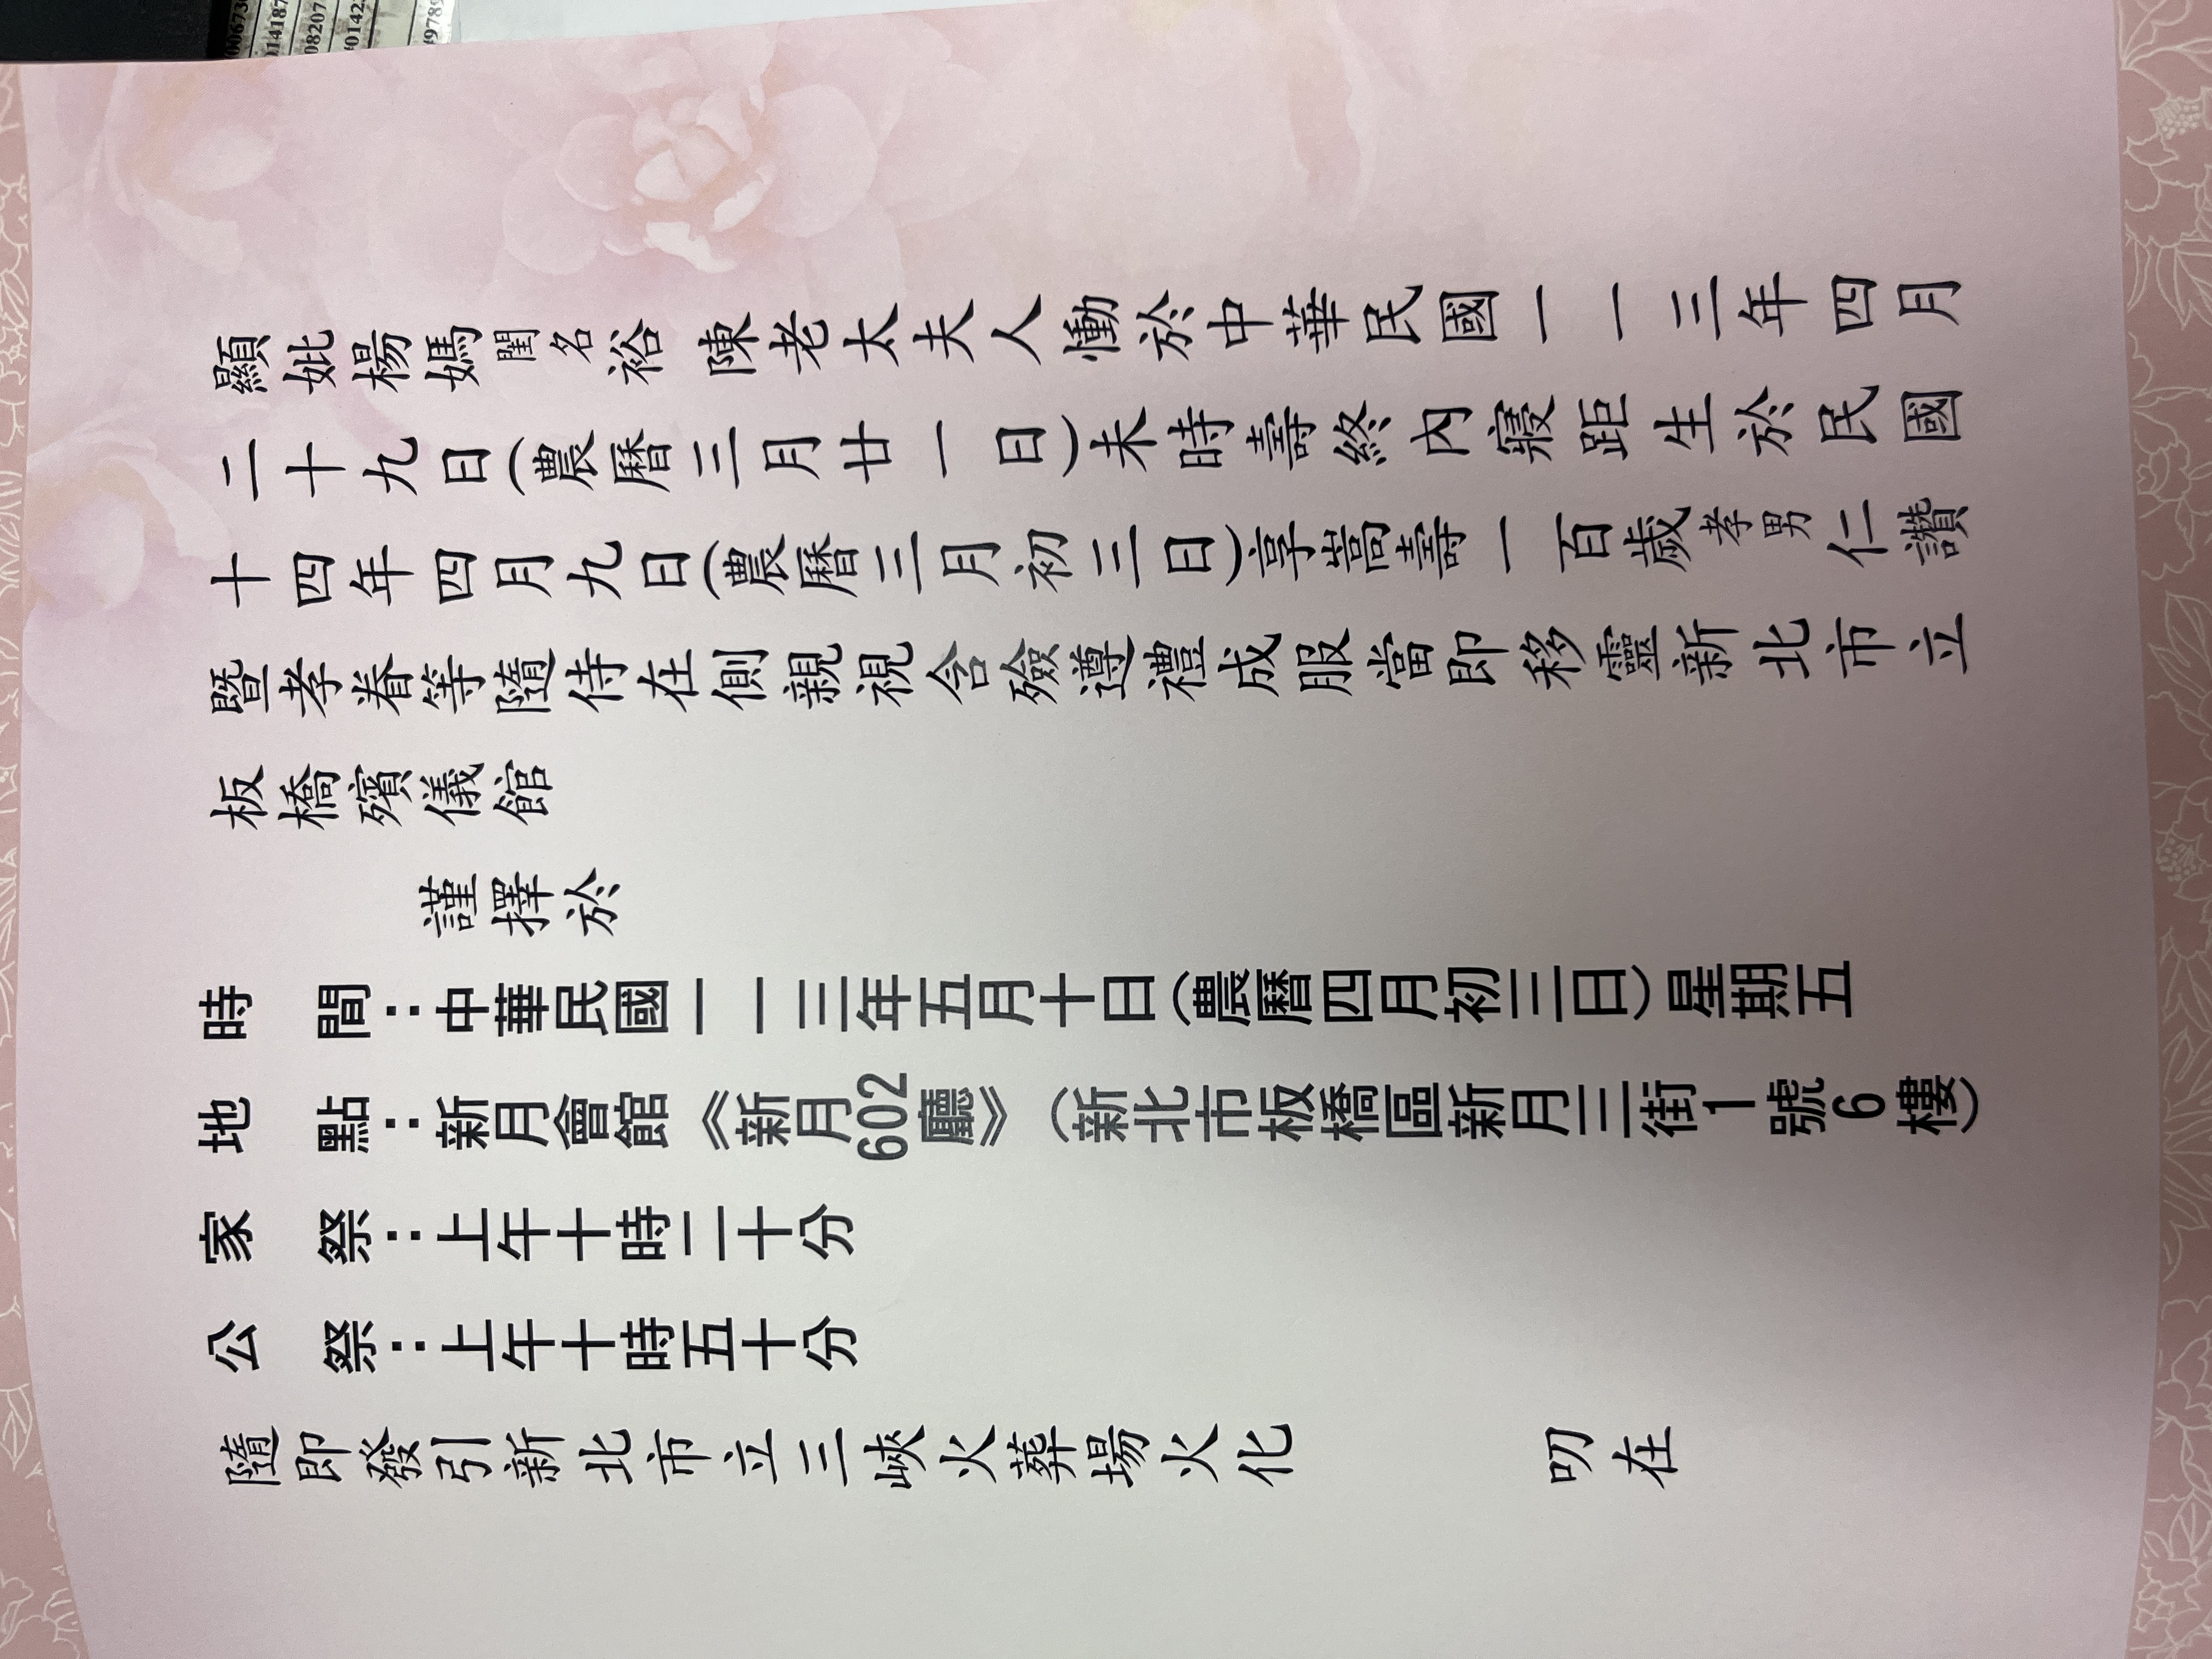 顯妣楊媽閨名裕陳老太夫人慟於中華民國一一三年四月
二十九日(農曆三月廿一日)未時壽終內寢距生於民國
十四年四月九日(農曆三月初三日)享嵩壽一百歲孝男仁讚
暨孝眷等隨侍在側親視含殮遵禮成服當即移靈新北市立
板橋殯儀館
謹擇於
時間：中華民國一一三年五月十日(農曆四月初三日)星期五
地點：新月會館《新月602廳》(新北市板橋區新月三街1號6樓)
家祭：上午十時二十分
公祭：上午十時五十分
隨即發引新北市立三峽火葬場火化 叨在